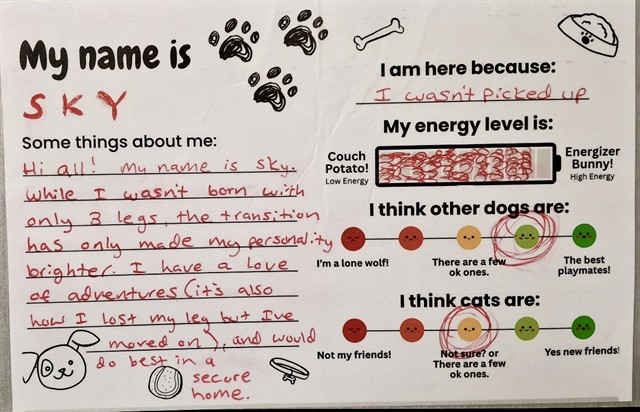 My name is
SKY
Some things about me:
Hi all! My name is Sky.
While I wasn't born with
only 3 legs, the transition
has only made my personality
brighter. I have a love
of adventures (it's also
how I lost my leg but I've
moved on), and would
do best in a
secure
home.
I am here because:
I wasn't picked up
My energy level is:
Couch
Potato!
Low Energy
Energizer
Bunny!
High Energy
I think other dogs are:
I'm a lone wolf!
There are a few
ok ones.
The best
playmates!
I think cats are:
Not my friends!
Not sure? or
There are a few
ok ones.
Yes new friends!